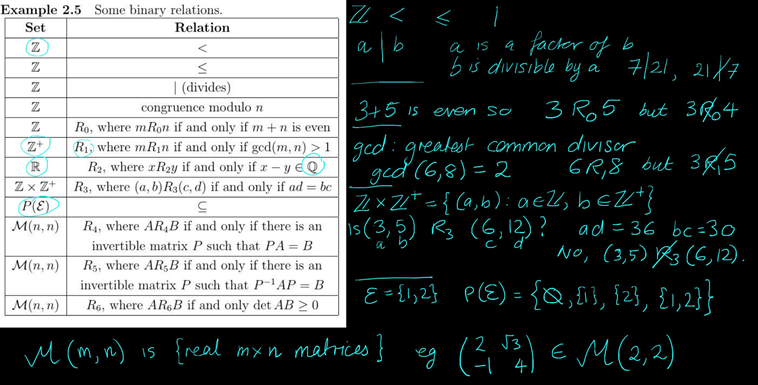 Example 2.5 Some binary relations.
Set Relation
ℤ <
ℤ ≤
ℤ | (divides)
ℤ congruence modulo n
ℤ R₀, where mR₀n if and only if m + n is even
ℤ⁺ R₁, where mR₁n if and only if gcd(m, n) > 1
ℝ R₂, where xR₂y if and only if x − y ∈ ℚ
ℤ × ℤ⁺ R₃, where (a, b)R₃(c, d) if and only if ad = bc
P(ℰ) ⊆
ℳ(n, n) R₄, where AR₄B if and only if there is an
invertible matrix P such that PA = B
ℳ(n, n) R₅, where AR₅B if and only if there is an
invertible matrix P such that P⁻¹AP = B
ℳ(n, n) R₆, where AR₆B if and only det AB ≥ 0
ℤ < ≤ |
a | b a is a factor of b
b is divisible by a 7|21, 21∤7
3+5 is even so 3 R₀ 5 but 3 R̸₀ 4
gcd: greatest common divisor
gcd (6,8) = 2 6 R₁ 8 but 3 R̸₁ 5
ℤ × ℤ⁺ = {(a,b): a∈ℤ, b∈ℤ⁺}
Is (3,5) R₃ (6,12)? ad = 36 bc = 30
a b c d
No, (3,5) R̸₃ (6,12).
ℰ = {1,2} P(ℰ) = {∅, {1}, {2}, {1,2}}
ℳ(m,n) is {real m×n matrices} eg (2 √3 ∈ ℳ(2,2)
-1 4)